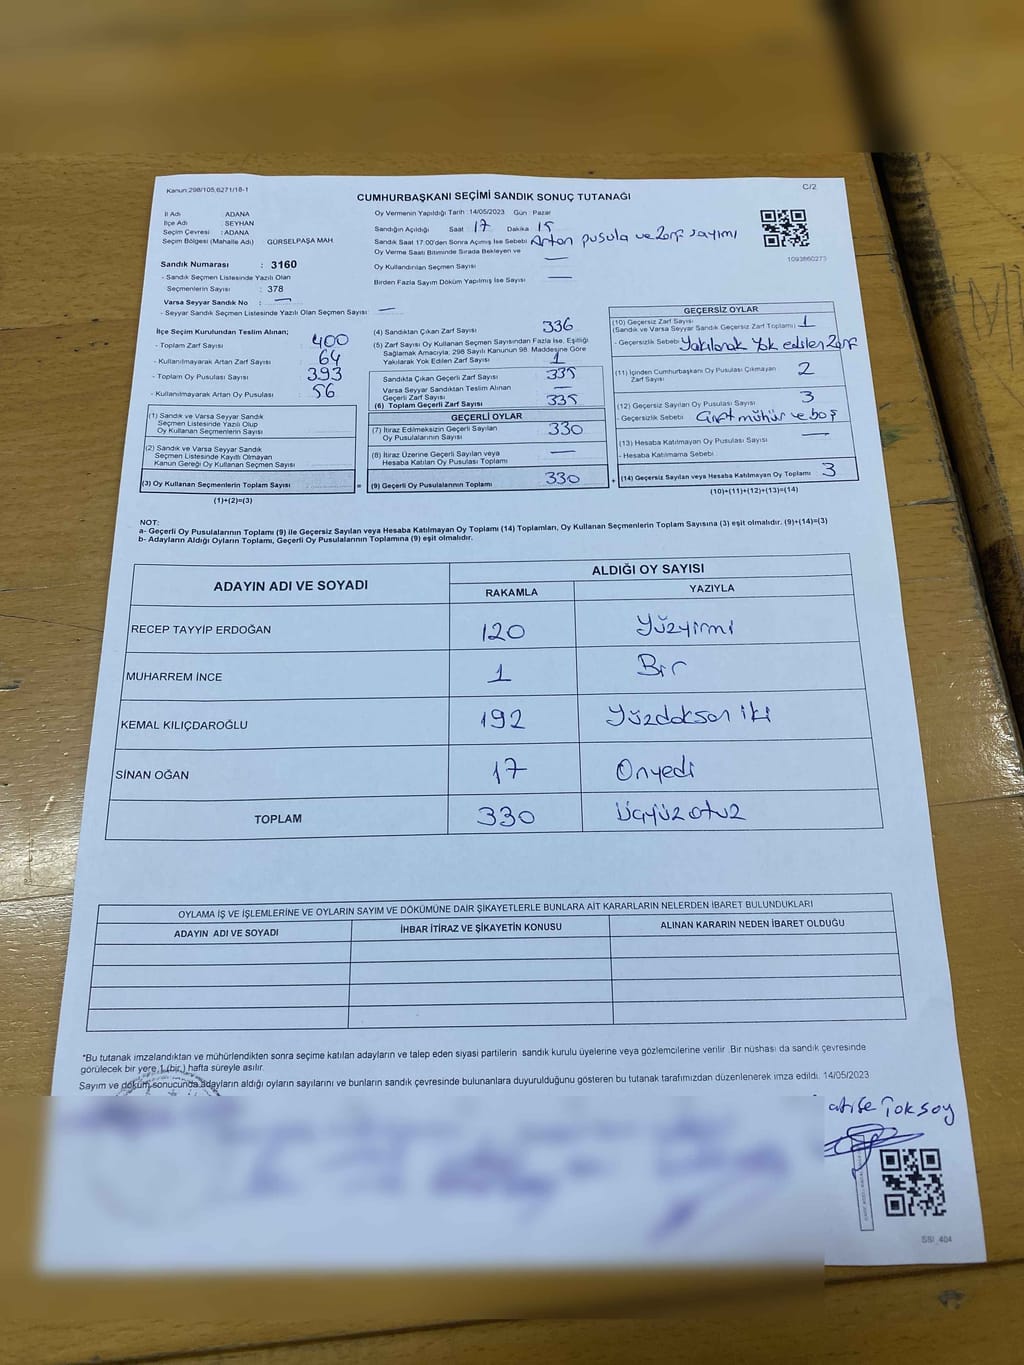 Kanun:298/105,6271/18-1
C/2
CUMHURBAŞKANI SEÇİMİ SANDIK SONUÇ TUTANAĞI
İl Adı : ADANA
İlçe Adı : SEYHAN
Seçim Çevresi : ADANA
Seçim Bölgesi (Mahalle Adı) GÜRSELPAŞA MAH
Oy Vermenin Yapıldığı Tarih :14/05/2023 Gün : Pazar
Sandığın Açıldığı Saat 17 Dakika 15
Sandık Saat 17:00'den Sonra Açımış İse Sebebi Artan pusula ve Zarf sayımı
Oy Verme Saati Bitiminde Sırada Bekleyen ve —
Oy Kullandırılan Seçmen Sayısı
Birden Fazla Sayım Döküm Yapılmış İse Sayısı —
1093860273
Sandık Numarası : 3160
- Sandık Seçmen Listesinde Yazılı Olan
Seçmenlerin Sayısı : 378
Varsa Seyyar Sandık No : —
- Seyyar Sandık Seçmen Listesinde Yazılı Olan Seçmen Sayısı: —
İlçe Seçim Kurulundan Teslim Alınan;
- Toplam Zarf Sayısı : 400
- Kullanılmayarak Artan Zarf Sayısı : 64
- Toplam Oy Pusulası Sayısı : 393
- Kullanılmayarak Artan Oy Pusulası : 56
(1) Sandık ve Varsa Seyyar Sandık
Seçmen Listesinde Yazılı Olup
Oy Kullanan Seçmenlerin Sayısı
(2) Sandık ve Varsa Seyyar Sandık
Seçmen Listesinde Kayıtlı Olmayan
Kanun Gereği Oy Kullanan Seçmen Sayısı
(3) Oy Kullanan Seçmenlerin Toplam Sayısı =
(1)+(2)=(3)
(4) Sandıktan Çıkan Zarf Sayısı 336
(5) Zarf Sayısı Oy Kullanan Seçmen Sayısından Fazla İse, Eşitliği
Sağlamak Amacıyla, 298 Sayılı Kanunun 98. Maddesine Göre
Yakılarak Yok Edilen Zarf Sayısı 1
Sandıkta Çıkan Geçerli Zarf Sayısı 335
Varsa Seyyar Sandıktan Teslim Alınan
Geçerli Zarf Sayısı —
(6) Toplam Geçerli Zarf Sayısı 335
GEÇERLİ OYLAR
(7) İtiraz Edilmeksizin Geçerli Sayılan
Oy Pusulalarının Sayısı 330
(8) İtiraz Üzerine Geçerli Sayılan veya
Hesaba Katılan Oy Pusulası Toplamı —
(9) Geçerli Oy Pusulalarının Toplamı 330 +
GEÇERSİZ OYLAR
(10) Geçersiz Zarf Sayısı
(Sandık ve Varsa Seyyar Sandık Geçersiz Zarf Toplamı) 1
- Geçersizlik Sebebi: Yakılarak Yok edilen Zarf
(11) İçinden Cumhurbaşkanı Oy Pusulası Çıkmayan
Zarf Sayısı 2
(12) Geçersiz Sayılan Oy Pusulası Sayısı 3
- Geçersizlik Sebebi: Çift mühür ve boş
(13) Hesaba Katılmayan Oy Pusulası Sayısı —
- Hesaba Katılmama Sebebi:
(14) Geçersiz Sayılan veya Hesaba Katılmayan Oy Toplamı 3
(10)+(11)+(12)+(13)=(14)
NOT:
a- Geçerli Oy Pusulalarının Toplamı (9) ile Geçersiz Sayılan veya Hesaba Katılmayan Oy Toplamı (14) Toplamları, Oy Kullanan Seçmenlerin Toplam Sayısına (3) eşit olmalıdır. (9)+(14)=(3)
b- Adayların Aldığı Oyların Toplamı, Geçerli Oy Pusulalarının Toplamına (9) eşit olmalıdır.
ADAYIN ADI VE SOYADI
ALDIĞI OY SAYISI
RAKAMLA YAZIYLA
RECEP TAYYİP ERDOĞAN 120 Yüzyirmi
MUHARREM İNCE 1 Bir
KEMAL KILIÇDAROĞLU 192 Yüzdoksan iki
SİNAN OĞAN 17 Onyedi
TOPLAM 330 Üçyüz otuz
OYLAMA İŞ VE İŞLEMLERİNE VE OYLARIN SAYIM VE DÖKÜMÜNE DAİR ŞİKAYETLERLE BUNLARA AİT KARARLARIN NELERDEN İBARET BULUNDUKLARI
ADAYIN ADI VE SOYADI İHBAR İTİRAZ VE ŞİKAYETİN KONUSU ALINAN KARARIN NEDEN İBARET OLDUĞU
*Bu tutanak imzalandıktan ve mühürlendikten sonra seçime katılan adayların ve talep eden siyasi partilerin sandık kurulu üyelerine veya gözlemcilerine verilir. Bir nüshası da sandık çevresinde
görülecek bir yere 1 (bir ) hafta süreyle asılır.
Sayım ve döküm sonucunda adayların aldığı oyların sayılarını ve bunların sandık çevresinde bulunanlara duyurulduğunu gösteren bu tutanak tarafımızdan düzenlenerek imza edildi. 14/05/2023
Toksoy
SSI_404